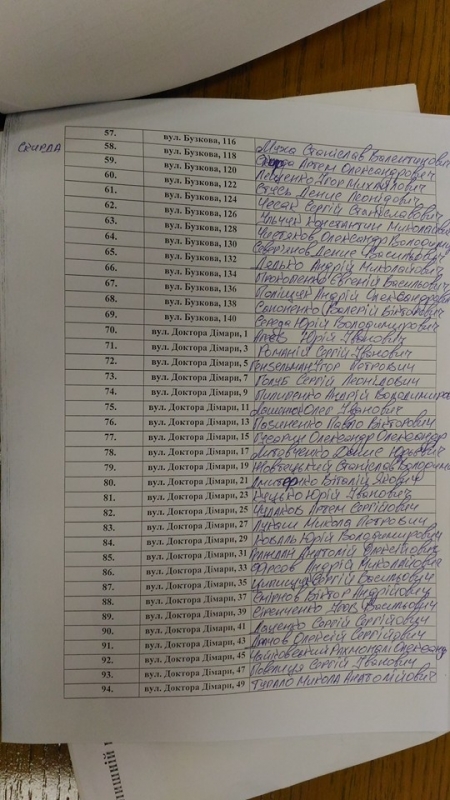 57. вул. Бузкова, 116 Муха Станіслав Валентинович
СКИРДА 58. вул. Бузкова, 118 Скирда Артем Олександрович
59. вул. Бузкова, 120 Левченко Ігор Михайлович
60. вул. Бузкова, 122 Стусь Денис Леонідович
61. вул. Бузкова, 124 Чесак Сергій Станіславович
62. вул. Бузкова, 126 Константин Миколайович
63. вул. Бузкова, 128 Шестаков Олександр Володимир
64. вул. Бузкова, 130 Денис Васильович
65. вул. Бузкова, 132 Андрій Миколайович
66. вул. Бузкова, 134 Прокопенко Евгеній Васильович
67. вул. Бузкова, 136 Поліщук Андрій Олександрович
68. вул. Бузкова, 138 Симоненко Валерій Вікторович
69. вул. Бузкова, 140 Середа Юрій Володимирович
70. вул. Доктора Дімари, 1 Юрій Іванович
71. вул. Доктора Дімари, 3 Романій Сергій Іванович
72. вул. Доктора Дімари, 5 Гензельман Ігор Петрович
73. вул. Доктора Дімари, 7 Голуб Сергій Леонідович
74. вул. Доктора Дімари, 9 Пилипенко Андрій Володимиров
75. вул. Доктора Дімари, 11 Олег Іванович
76. вул. Доктора Дімари, 13 Павло Вікторович
77. вул. Доктора Дімари, 15 Олександр Олександр
78. вул. Доктора Дімари, 17 Литовченко Денис Юрьевич
79. вул. Доктора Дімари, 19 Жовтецький Станіслав Володим
80. вул. Доктора Дімари, 21 Дмитренко Віталій Якович
81. вул. Доктора Дімари, 23 Куцько Юрій Іванович
82. вул. Доктора Дімари, 25 Чудаков Артем Сергійович
83. вул. Доктора Дімари, 27 Лукаш Микола Петрович
84. вул. Доктора Дімари, 29 Коваль Юрій Володимирович
85. вул. Доктора Дімари, 31 Анатолій Олексійович
86. вул. Доктора Дімари, 33 Фирсов Андрій Миколайович
87. вул. Доктора Дімари, 35 Ципищук Сергій Васильович
88. вул. Доктора Дімари, 37 Смірнов Віктор Андрійович
89. вул. Доктора Дімари, 39 Сіренченко Яков Васильович
90. вул. Доктора Дімари, 41 Яценко Сергій Сергійович
91. вул. Доктора Дімари, 43 Олексій Сергійович
92. вул. Доктора Дімари, 45 Чайковский Олександр
93. вул. Доктора Дімари, 47 Павлиця Сергій Іванович
94. вул. Доктора Дімари, 49 Турало Микола Анатолійович